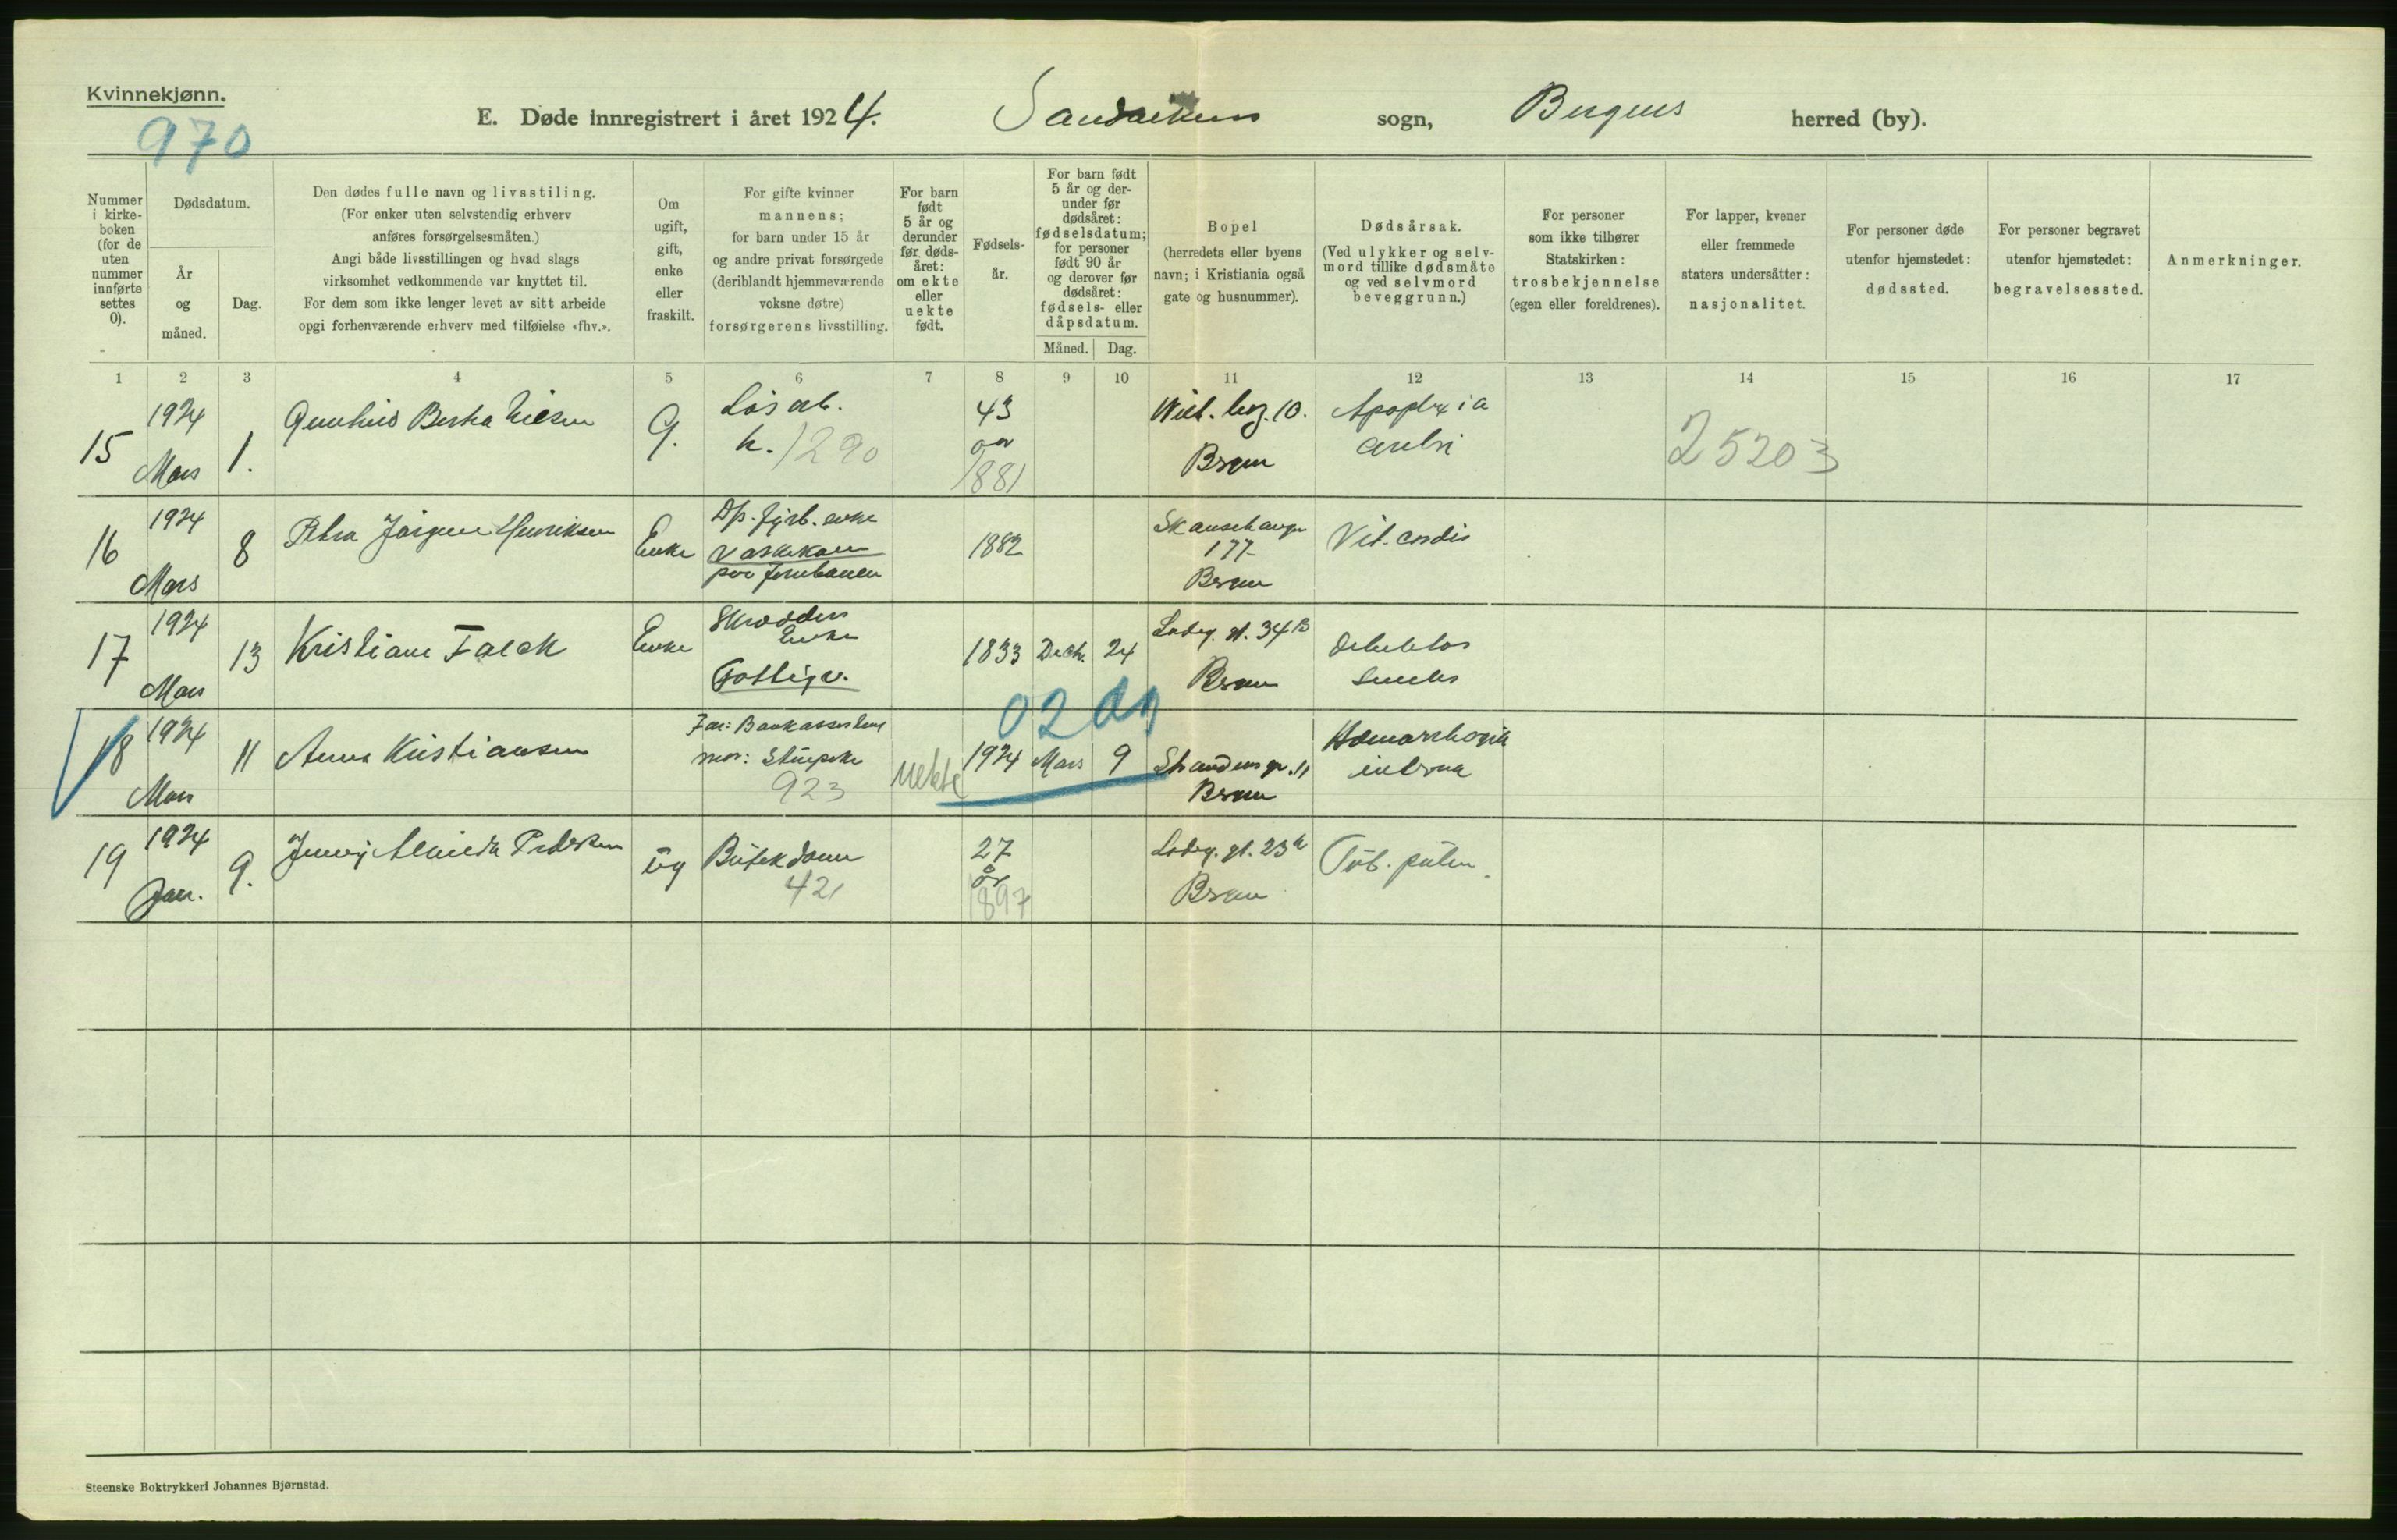 Kvinnekjønn.
970
E. Døde innregistrert i året 1924. Sandvikens sogn, Bergens herred (by).
Nummer i kirke- boken (for de uten nummer innførte settes 0).
Dødsdatum.
År og måned.
Dag.
Den dødes fulle navn og livsstiling.
(For enker uten selvstendig erhverv
anføres forsørgelsesmåten.)
Angi både livsstillingen og hvad slags
virksomhet vedkommende var knyttet til.
For dem som ikke lenger levet av sitt arbeide
opgi forhenværende erhverv med tilføielse «fhv.».
Om ugift, gift, enke eller fraskilt.
For gifte kvinner
mannens;
for barn under 15 år
og andre privat forsørgede
(deriblandt hjemmeværende
voksne døtre)
forsørgerens livsstilling.
For barn født 5 år og derunder før døds- året: om ekte eller uekte født.
Fødsels- år.
For barn født 5 år og der- under før dødsåret: fødselsdatum; for personer født 90 år og derover før dødsåret: fødsels- eller dåpsdatum.
Måned. Dag.
Bopel
(herredets eller byens
navn; i Kristiania også
gate og husnummer).
Dødsårsak.
(Ved ulykker og selv-
mord tillike dødsmåte
og ved selvmord
beveggrunn.)
For personer
som ikke tilhører
Statskirken:
trosbekjennelse
(egen eller foreldrenes).
For lapper, kvener
eller fremmede
staters undersåtter:
nasjonalitet.
For personer døde
utenfor hjemstedet:
dødssted.
For personer begravet
utenfor hjemstedet:
begravelsessted.
Anmerkninger.
1 2 3 4 5 6 7 8 9 10 11 12 13 14 15 16 17
15 1924 Mars 1. Gunhild Bertha Nilsen G. Løsarb. h. 1290 43 aar 1881 10. Bergen Apoplexia cerebri 25203
16 1924 Mars 8 Petra Henriksen Enke Vaskekone paa Jernbanen 1882 177 Bergen Vit. cordis
17 1924 Mars 13 Kristiane Falck Enke Skrædder Enke Fattigv. 1833 Decbr. 24 Ladeg. gt. 34 B Bergen Debilitas senilis
0200
18 1924 Mars 11 Anna Kristiansen Far: mor: 923 uekte 1924 Mars 9 Strandens gr. 11 Bergen interna
19 1924 Jan. 9. Jenny Pedersen Ug Butikdame 421 27 år 1897 Ladeg. gt. 23 a Bergen Tub. pulm.
Steenske Boktrykkeri Johannes Bjørnstad.